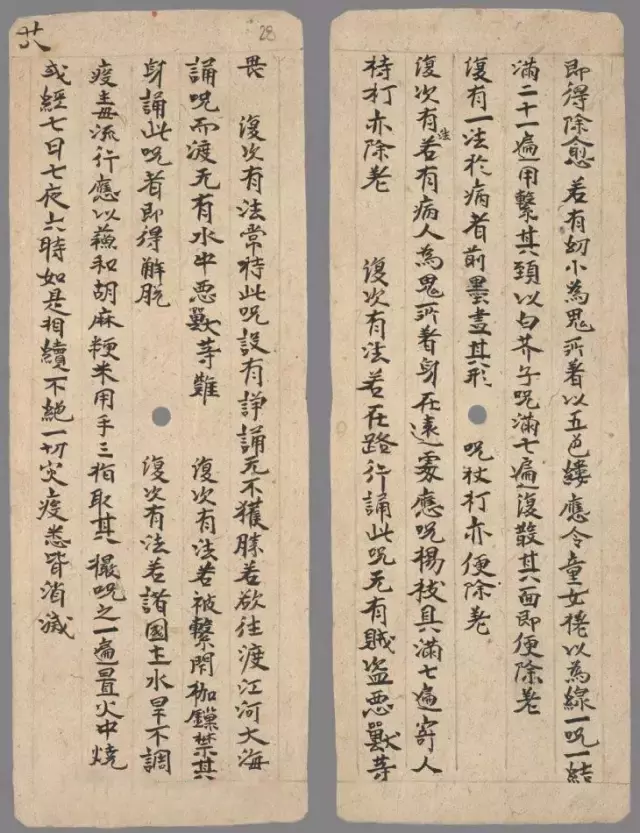 即得除愈 若有幼小為鬼所著以五色縷應令童女搓以為線一咒一結
滿二十一遍用繫其頸以白芥子咒滿七遍復散其面即便除老
復有一法於病者前墨畫其形 咒杖打亦便除老
復次有法若有病人為鬼所著身在遠處應咒楊枝具滿七遍寄人
持打亦除老 復次有法若在路行誦此咒无有賊盜惡獸等
廿八
28
畏 復次有法常持此咒設有諍誦无不獲勝若欲往渡江河大海
誦咒而渡无有水中惡獸等難 復次有法若被繫閉枷鏁禁其
身誦此咒者即得解脫 復次有法若諸國土水旱不調
疫毒流行應以蘇和胡麻粳米用手三指取其一撮咒之一遍置火中燒
或經七日七夜六時如是相續不絕一切灾疫悉皆消滅